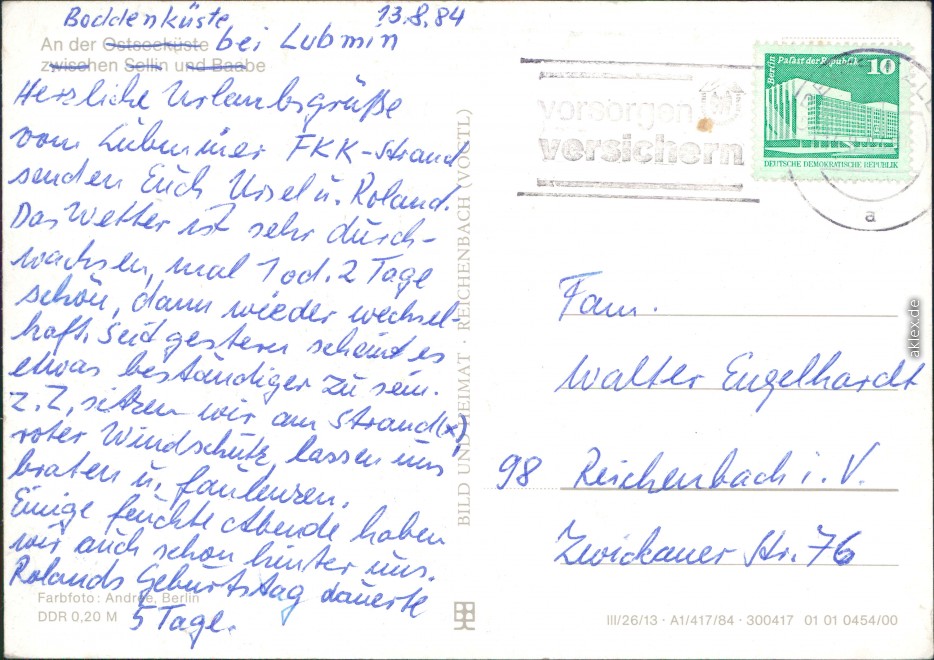 Boddenküste 13.8.84
An der Ostseeküste bei Lubmin
zwischen Sellin und Baabe
Herzliche Urlaubsgrüße
vom Lubminer FKK-Strand
senden Euch Ursel u. Roland.
Das Wetter ist sehr durch-
wachsen, mal 1 od. 2 Tage
schön, dann wieder wechsel-
haft. Seit gestern scheint es
etwas beständiger zu sein.
z.Z. sitzen wir am Strand (x),
roter Windschutz, lassen uns
braten u. faulenzen.
Einige feuchte Abende haben
wir auch schon hinter uns.
Rolands Geburtstag dauerte
5 Tage.
Farbfoto: Andrée, Berlin
DDR 0,20 M
BILD UND HEIMAT · REICHENBACH (VOGTL)
vorsorgen
versichern
Berlin Palast der Republik 10
DEUTSCHE DEMOKRATISCHE REPUBLIK
a
Fam.
Walter Engelhardt
98 Reichenbach i. V.
Zwickauer Str. 76
III/26/13 · A1/417/84 · 300417 01 01 0454/00
aklex.de